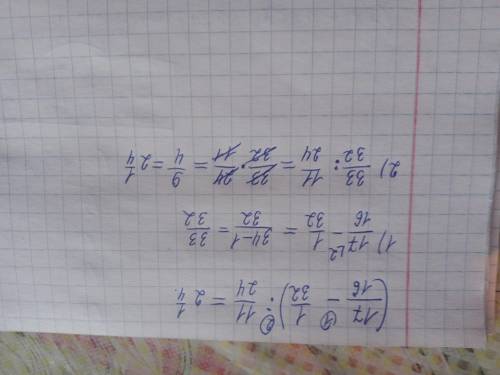 (17/16 - 1/32) : 11/24 = 2 1/4
1) 17/16 - 1/32 = 34-1/32 = 33/32
2) 33/32 : 11/24 = 33/32 · 24/11 = 9/4 = 2 1/4